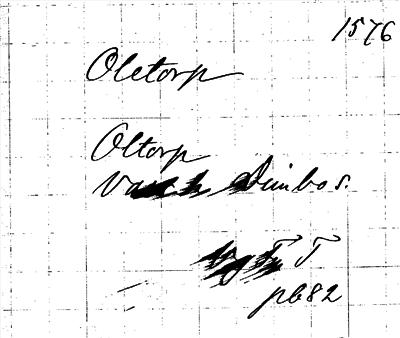 1576
Oletorp
Oltorp
Dimbo s.
T
pb82